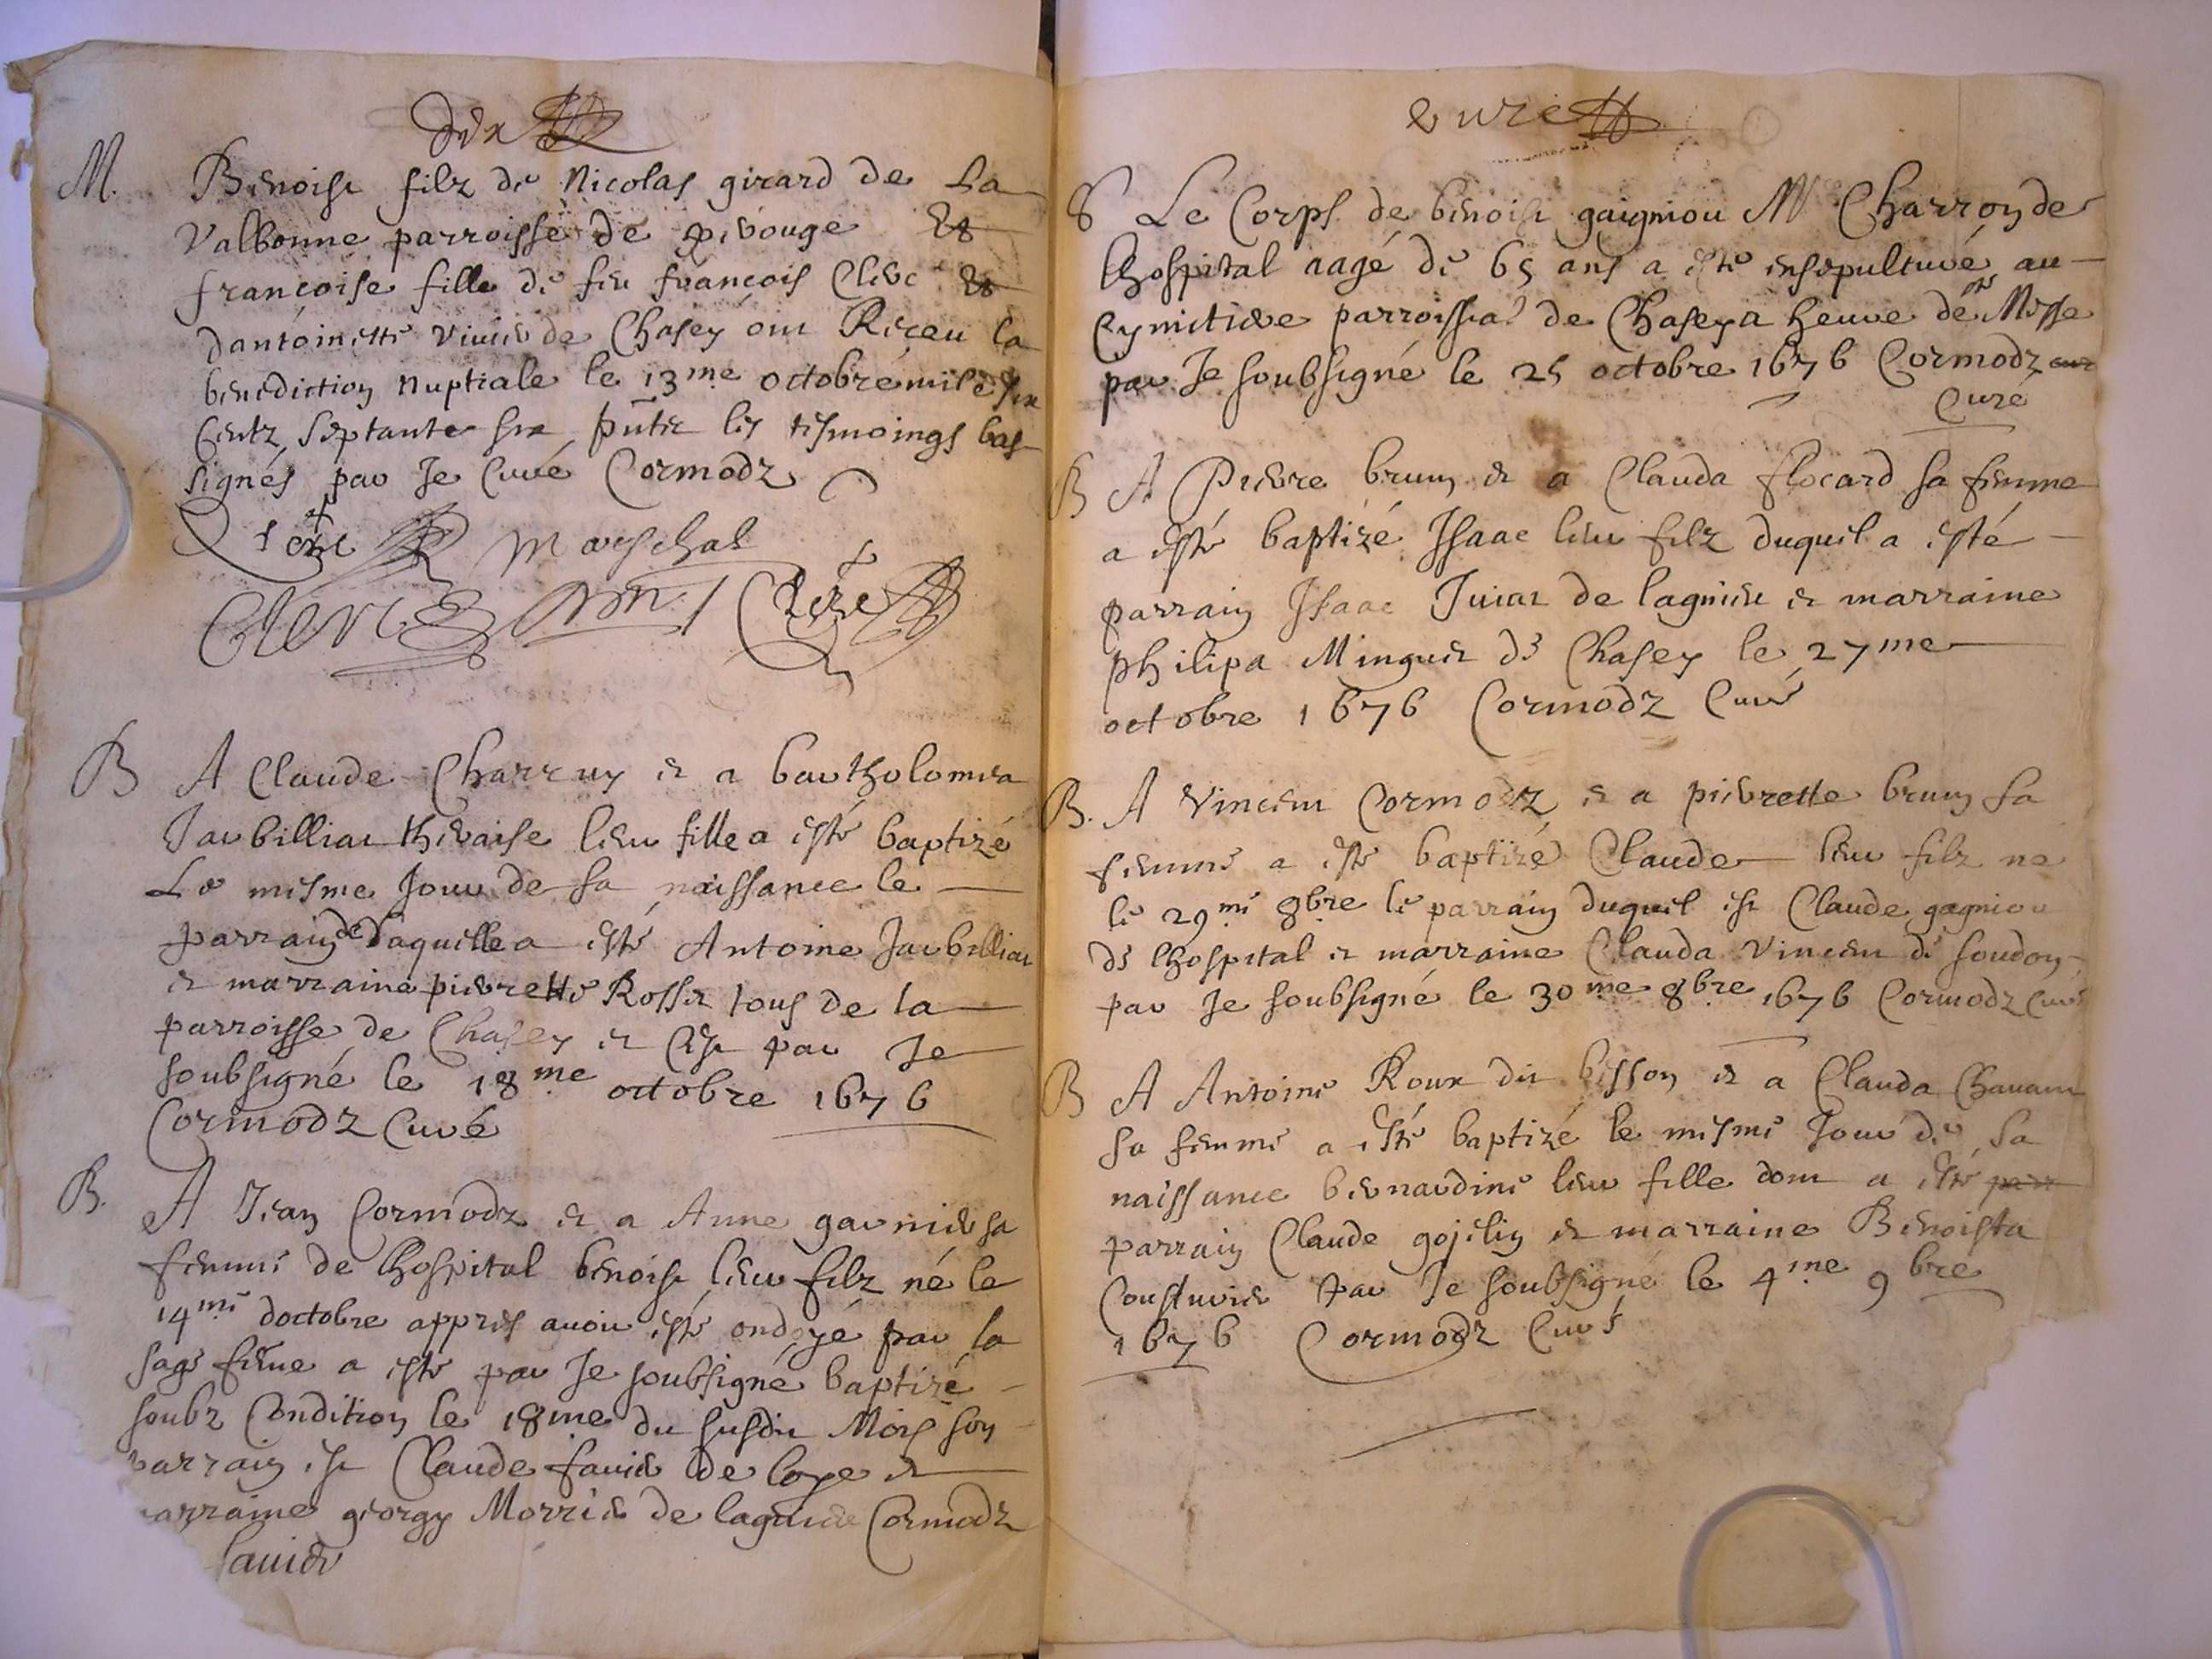 dix
M. Benoist filz de Nicolas girard de La
Valbonne parroisse de perouge Et
francoise fille de feu françois Clerc Et
dantoinette vivier de Chasey ont Receu la
benediction nuptiale le 13me octobre mile six
Centz septante six pntz les tesmoings bas
signés par Je Curé Cormodz
Mareschal
Clerc Clerc
B A Claude Charruy et a bartholomea
Jarbilliat thevaise leur fille a esté baptizé
Le mesme Jour de sa naissance le
parrain de Laquelle a esté Antoine Jarbilliat
et marraine pierrette Rosset tous de la
parroisse de Chasey et Cest par Je
soubsigné le 18me octobre 1676
Cormodz Curé
B. A Jean Cormodz et a Anne garnier sa
femme de lhospital benoist leur filz né le
14me doctobre appres avoir esté ondoyé par la
sage feme a esté par Je soubsigné baptizé
soubz Condition le 18me du susdit Mois son
parrain est Claude favier de loye et
marraine georgy Morrier de Cormodz
favier
S Le Corps de benoist gaigniou Mr Charron de
lhospital aagé de 65 ans a esté ensepulturé au
Cymetiere parroissial de Chasey a heure de Messe
par Je soubsigné le 25 octobre 1676 Cormodz
Curé
B A Pierre brun et a Clauda flocard sa femme
a esté baptizé Isaac leur filz duquel a esté
parrain Isaac Juiat de lagnieu et marraine
philipa Minguet de Chasey le 27me
octobre 1676 Cormodz Curé
B. A Vincent Cormodz et a pierrette brun sa
femme a esté baptizé Claude leur filz ne
le 29me 8bre le parrain duquel est Claude gagniou
de lhospital et marraine Clauda Vincent de soudon
par Je soubsigné le 30me 8bre 1676 Cormodz Curé
B A Antoine Roux dit bisson et a Clauda Chavant
sa femme a esté baptizé le mesme Jour de sa
naissance bernardine leur fille dont a esté parr
parrain Claude gojelin et marraine Benoista
Cousturier par Je soubsigné le 4me 9bre
1676 Cormodz Curé